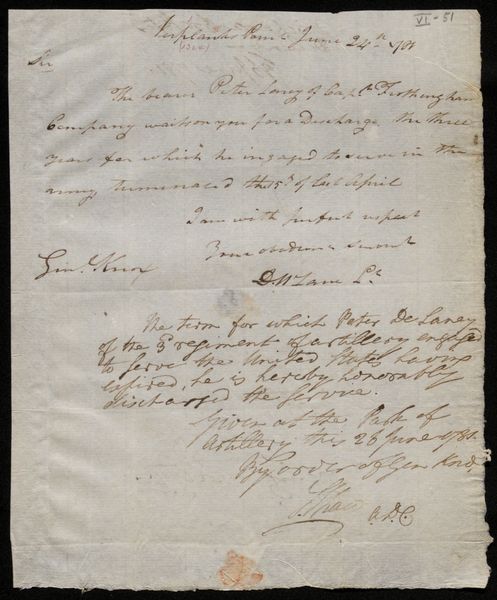 VI-51
Verplanks Point June 24th 1781
Sir
The bearer Peter Laney of Capt Frothingham
Company waits on you for a Discharge the three
years for which he ingaged to serve in the
army terminated the 15th of last April
I am with perfect respect
Your obedient servant
D. McLane Lt
Genl. Knox
The term for which Peter De Laney
of the 3 regiment of artillery engaged
to serve the United States having
expired, he is hereby honorably
discharged the service.
Given at the Park of
Artillery this 26 June 1781.
By order of Gen Knox
S Shaw
A.D.C.